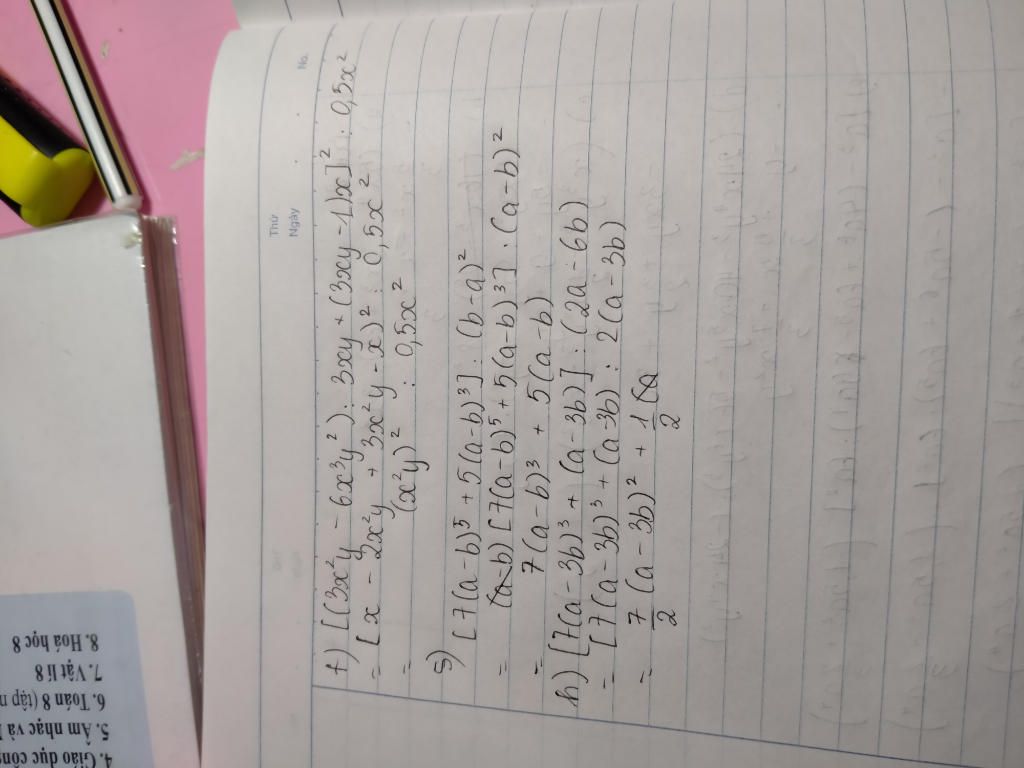 No.
Thứ
Ngày
f) [(3x²y - 6x³y²) : 3xy + (3xy - 1)x]² : 0,5x²
= [x - 2x²y + 3x²y - x)² : 0,5x²
= (x²y)² : 0,5x²
g) [7(a-b)⁵ + 5(a-b)³] : (b-a)²
= (a-b) [7(a-b)⁵ + 5(a-b)³] : (a-b)²
= 7(a-b)³ + 5(a-b)
h) [7(a-3b)³ + (a-3b)] : (2a-6b)
= [7(a-3b)³ + (a-3b) : 2(a-3b)
= 7/2 (a-3b)² + 1/2
4. Giáo dục công
5. Âm nhạc và
6. Toán 8 (tập
7. Vật lí 8
8. Hoá học 8